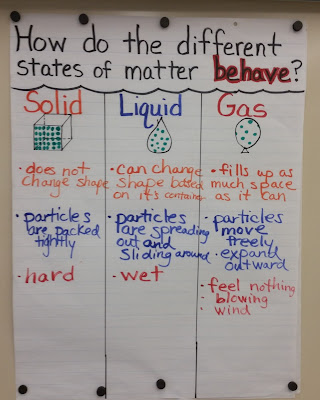 How do the different
states of matter behave?
Solid
• does not
change shape
• particles
are packed
tightly
• hard
Liquid
• can change
shape based
on it's container
• particles
are spreading
out and
sliding around
• wet
Gas
• fills up as
much space
as it can
• particles
move
freely
• expand
outward
• feel nothing
• blowing
• wind